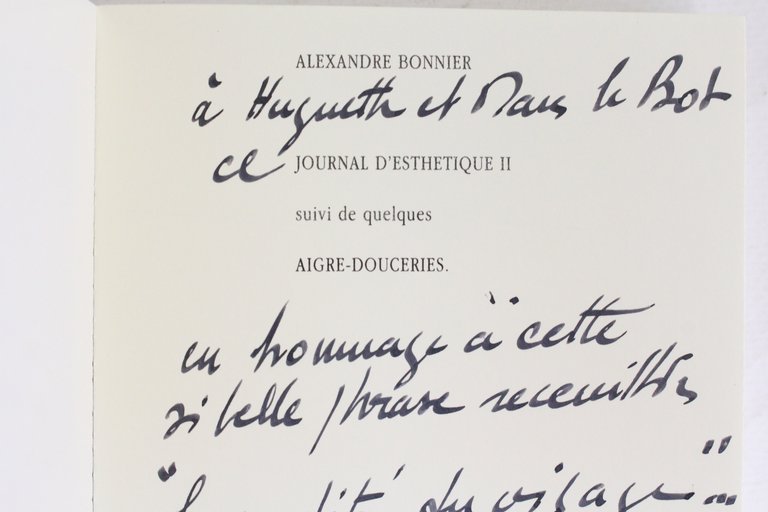 ALEXANDRE BONNIER
à Huguette et Marc le Bot
ce JOURNAL D'ESTHETIQUE II
suivi de quelques
AIGRE-DOUCERIES.
en hommage à cette
si belle phrase receuillie
" du visage " ...